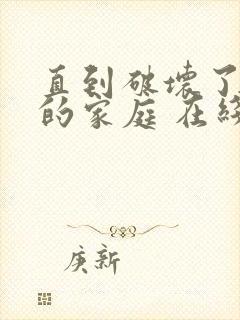 直到破坏了
的家庭 在线
庚新